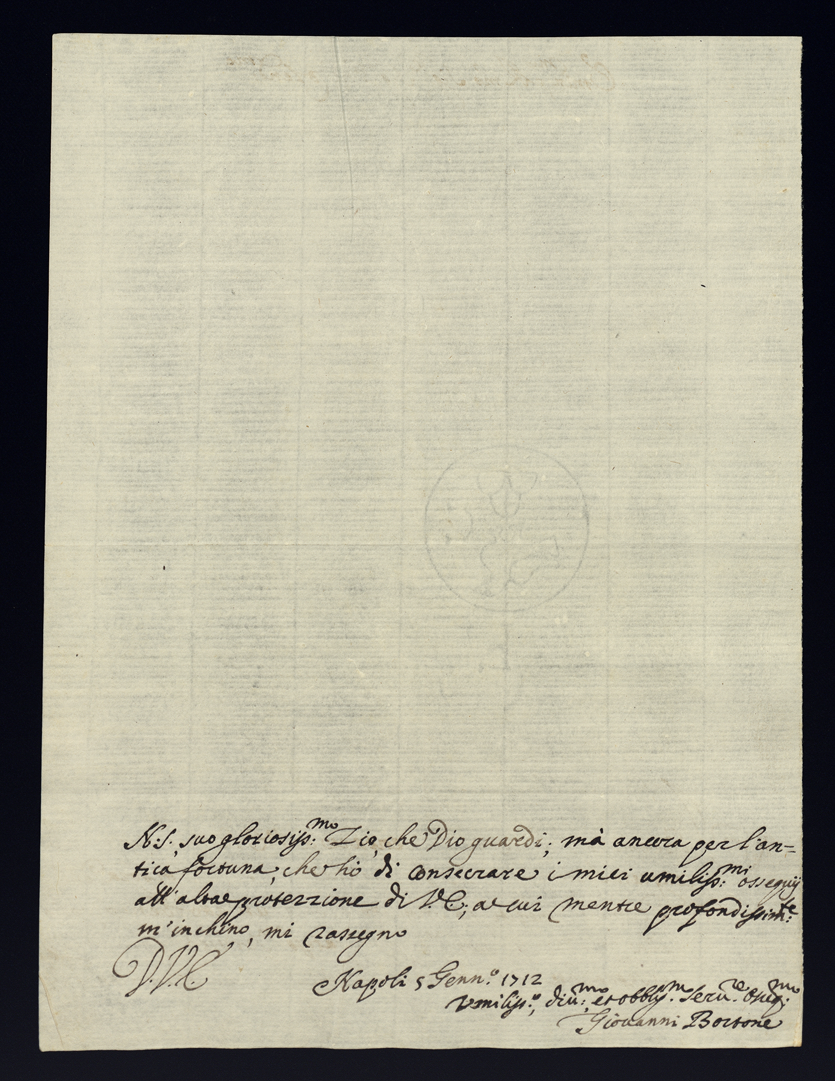 N. S. suo gloriosiss:mo Zio, che Dio guardi; mà ancora per l'an-
tica fortuna, che hò di consecrare i miei umiliss:mi ossequij
all'alta protezzione di V. E.; a cui mentre profondissim:te
m'inchino, mi rassegno
D. V. E.
Napoli 5 Genn.o 1712
Umiliss:o, diu:mo et obblig.mo Seru.re osseq:mo
Giovanni Bortone